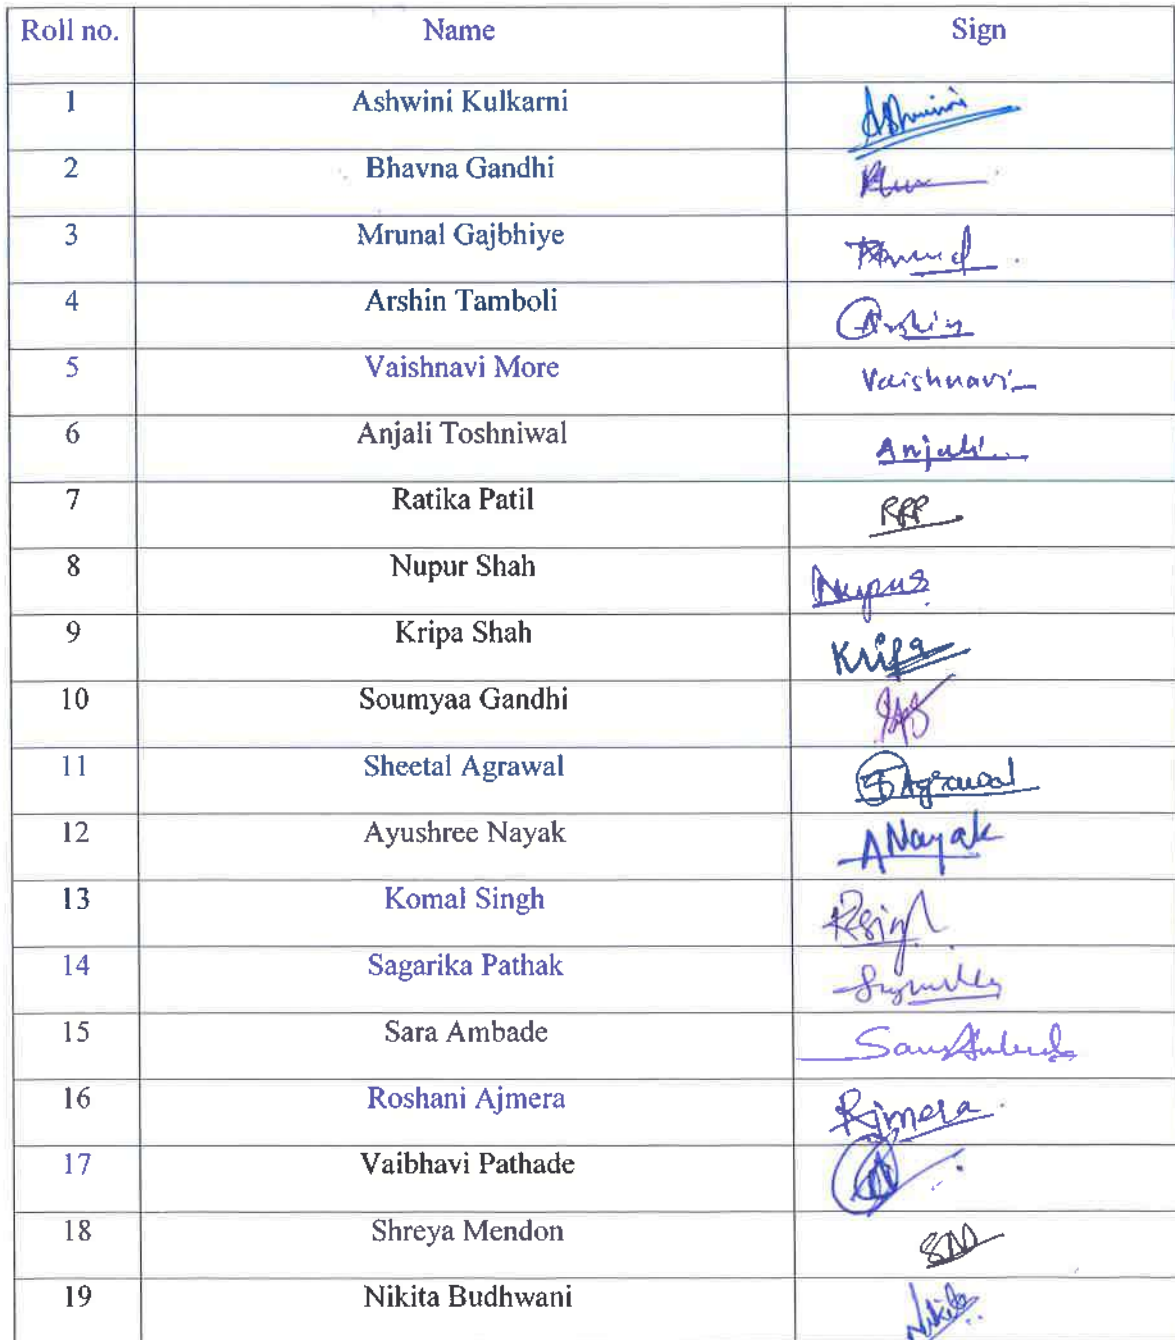 Roll no. Name Sign
1 Ashwini Kulkarni Ashwini
2 Bhavna Gandhi
3 Mrunal Gajbhiye
4 Arshin Tamboli Arshin
5 Vaishnavi More Vaishnavi
6 Anjali Toshniwal Anjali
7 Ratika Patil RRP
8 Nupur Shah Nupur
9 Kripa Shah Kripa
10 Soumyaa Gandhi
11 Sheetal Agrawal SAgrawal
12 Ayushree Nayak ANayak
13 Komal Singh
14 Sagarika Pathak
15 Sara Ambade
16 Roshani Ajmera Rjmera
17 Vaibhavi Pathade
18 Shreya Mendon
19 Nikita Budhwani Nikita